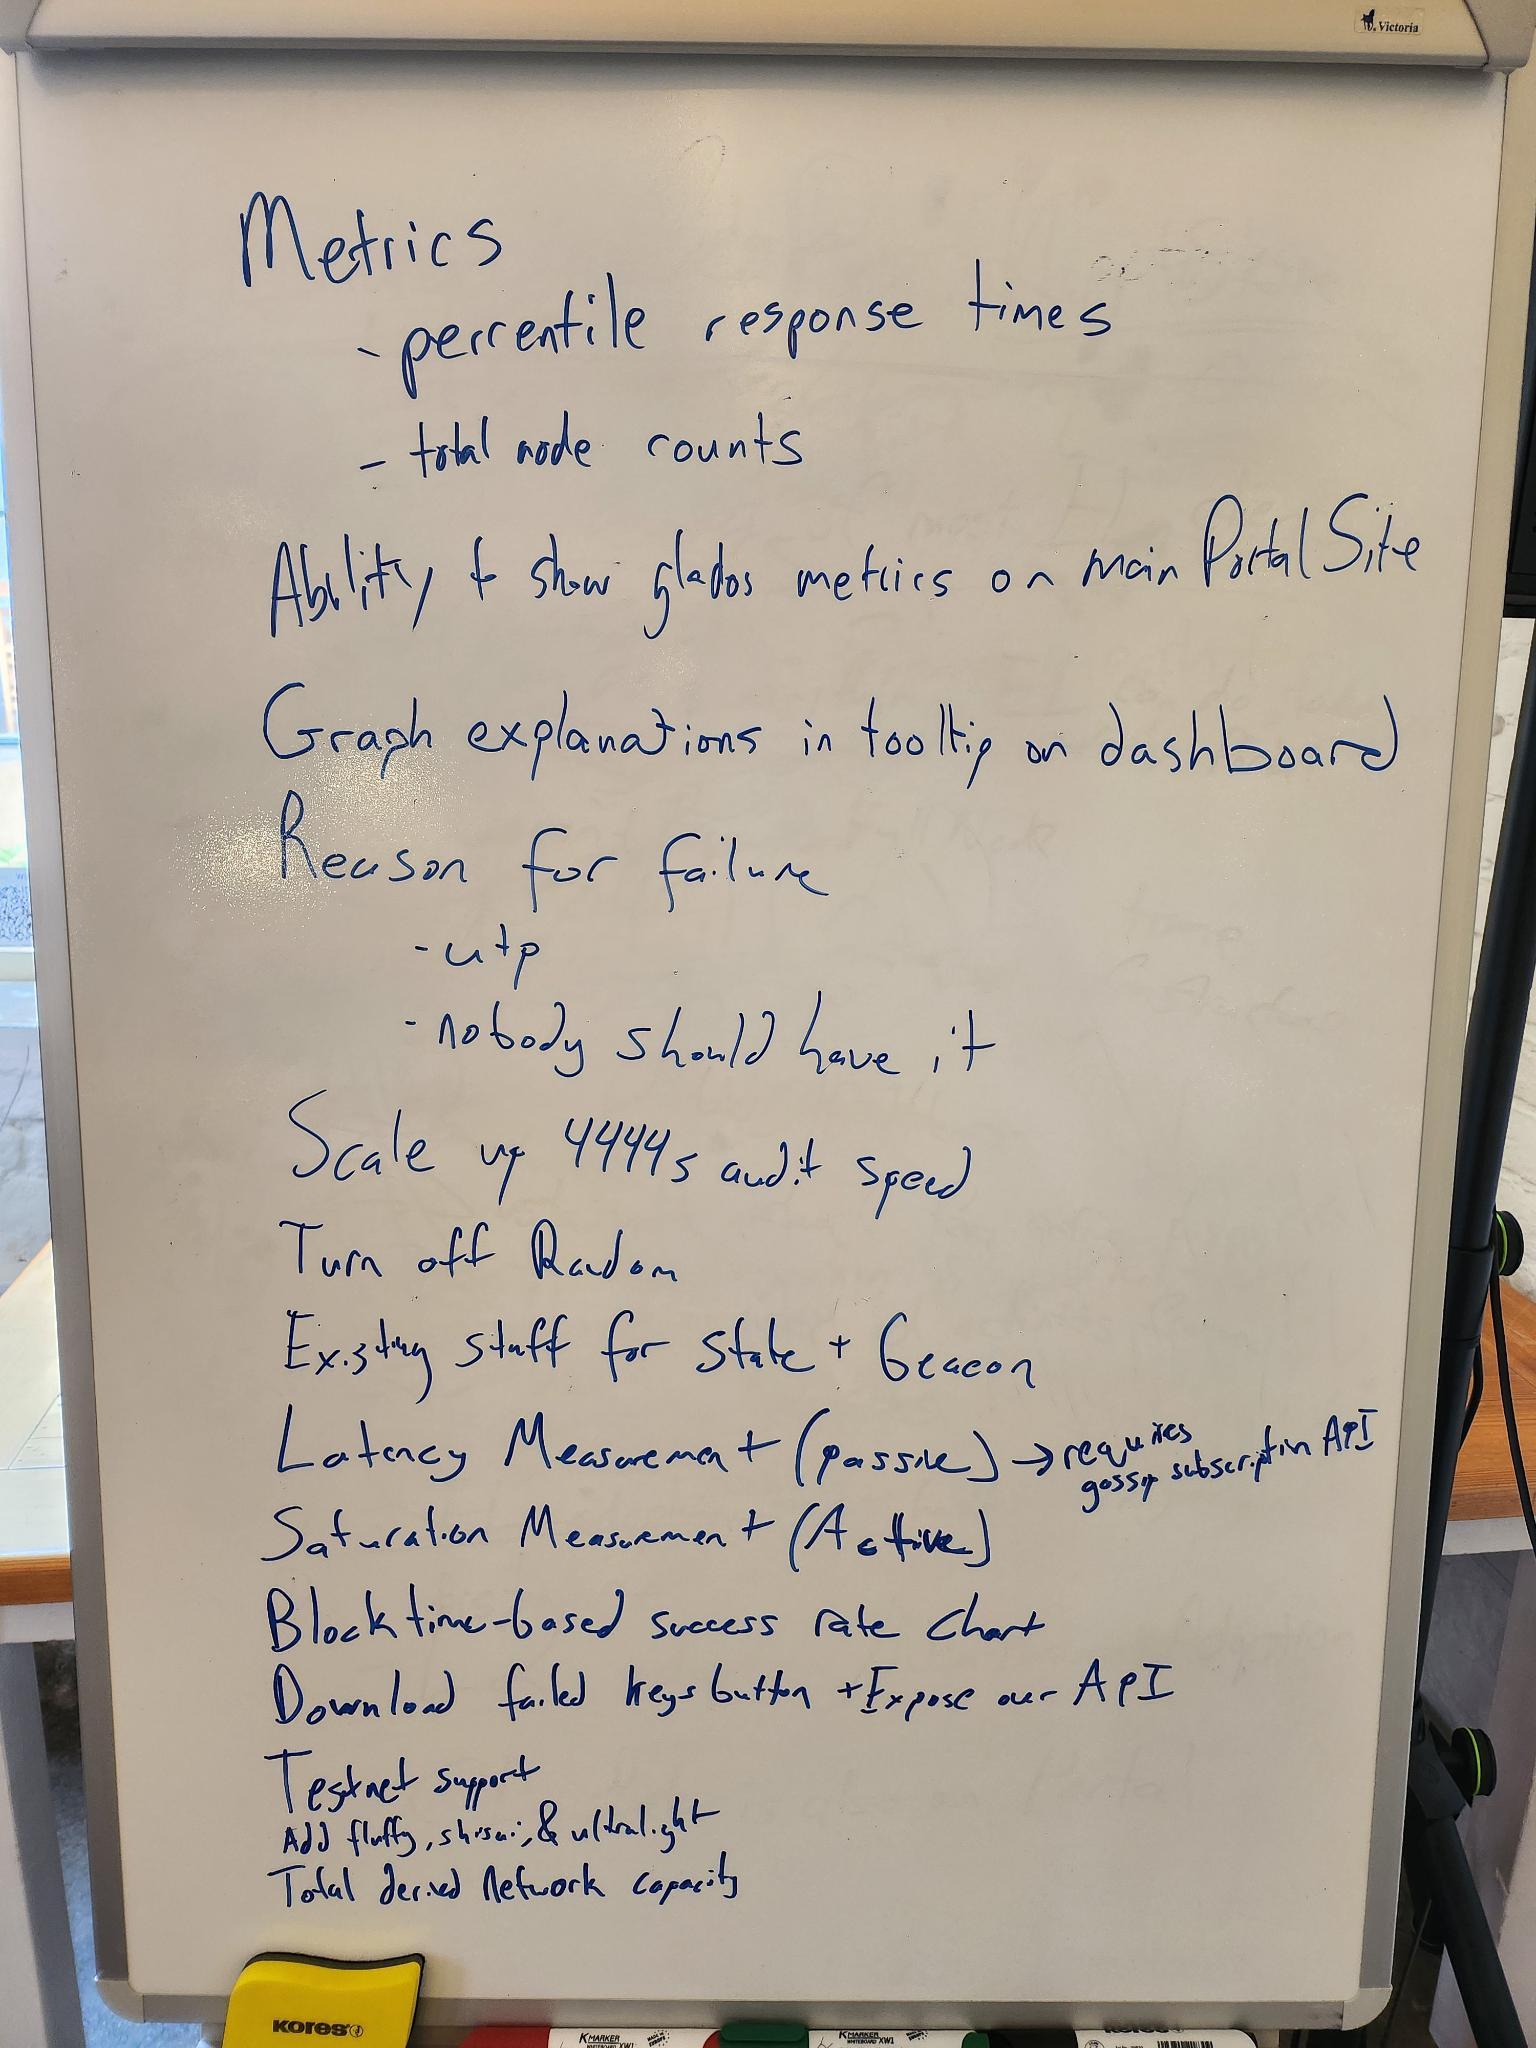 Victoria
Metrics
- percentile response times
- total node counts
Ability to show glados metrics on main Portal Site
Graph explanations in tooltip on dashboard
Reason for failure
- utp
- nobody should have it
Scale up 4444s audit speed
Turn off Random
Existing stuff for State + Beacon
Latency Measurement (passive) → requires
gossip subscription API
Saturation Measurement (Active)
Block time-based success rate chart
Download failed keys button + Expose our API
Testnet support
Add fluffy, shisui, & ultralight
Total derived network capacity
KORES
K MARKER
WHITEBOARD XW1
MADE IN EUROPE
K MARKER
WHITEBOARD XW1
KORES